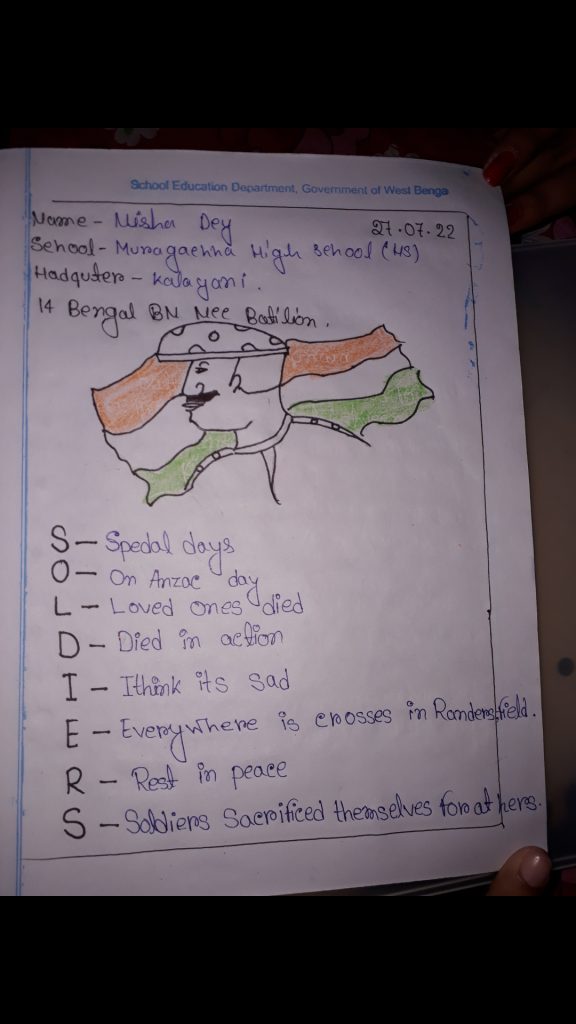 School Education Department, Government of West Benga
Name - Misha Dey 27.07.22
School - Muragachha High School (HS)
Hadquter - Kalayani.
14 Bengal BN Nee Batilion.
S - Spedal days
O - On Anzac day
L - Loved ones died
D - Died in action
I - Ithink its sad
E - Everywhere is crosses in Randersfield.
R - Rest in peace
S - Soldiers Sacrificed themselves for at hers.